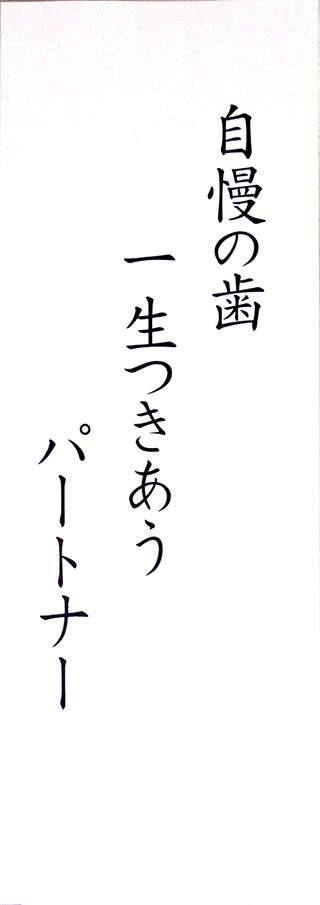 自慢の歯
一生つきあう
パートナー